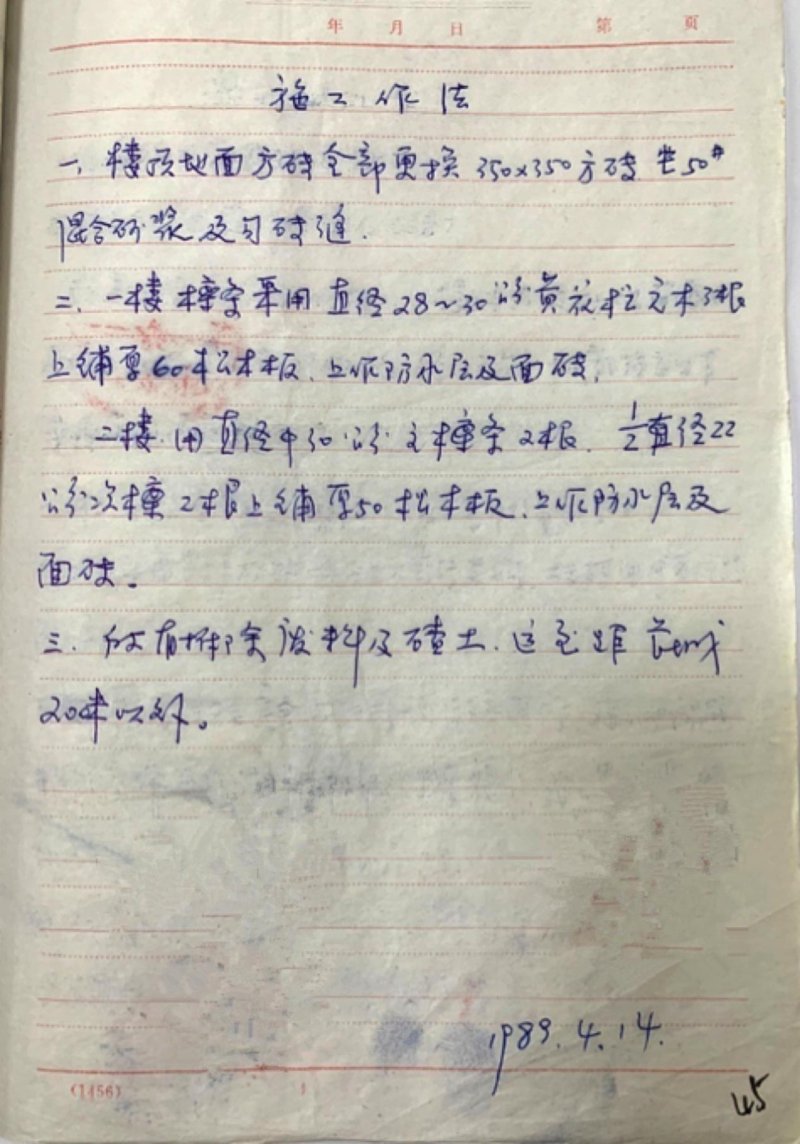 年 月 日 第 页
施工作法
一、楼顶地面方砖全部更换350×350方砖 50#
混合砂浆及勾砖缝.
二、一楼檩条采用直径28~30公分黄花松元木3根
上铺厚60松木板、上作防水层及面砖.
二楼用直径中30公分主檩条2根、1/2直径22
公分次檩2根上铺厚50松木板、上作防水层及
面砖。
三、所有拆除废料及碴土、运至距长城
20米以外。
1989.4.14.
(1456)
45